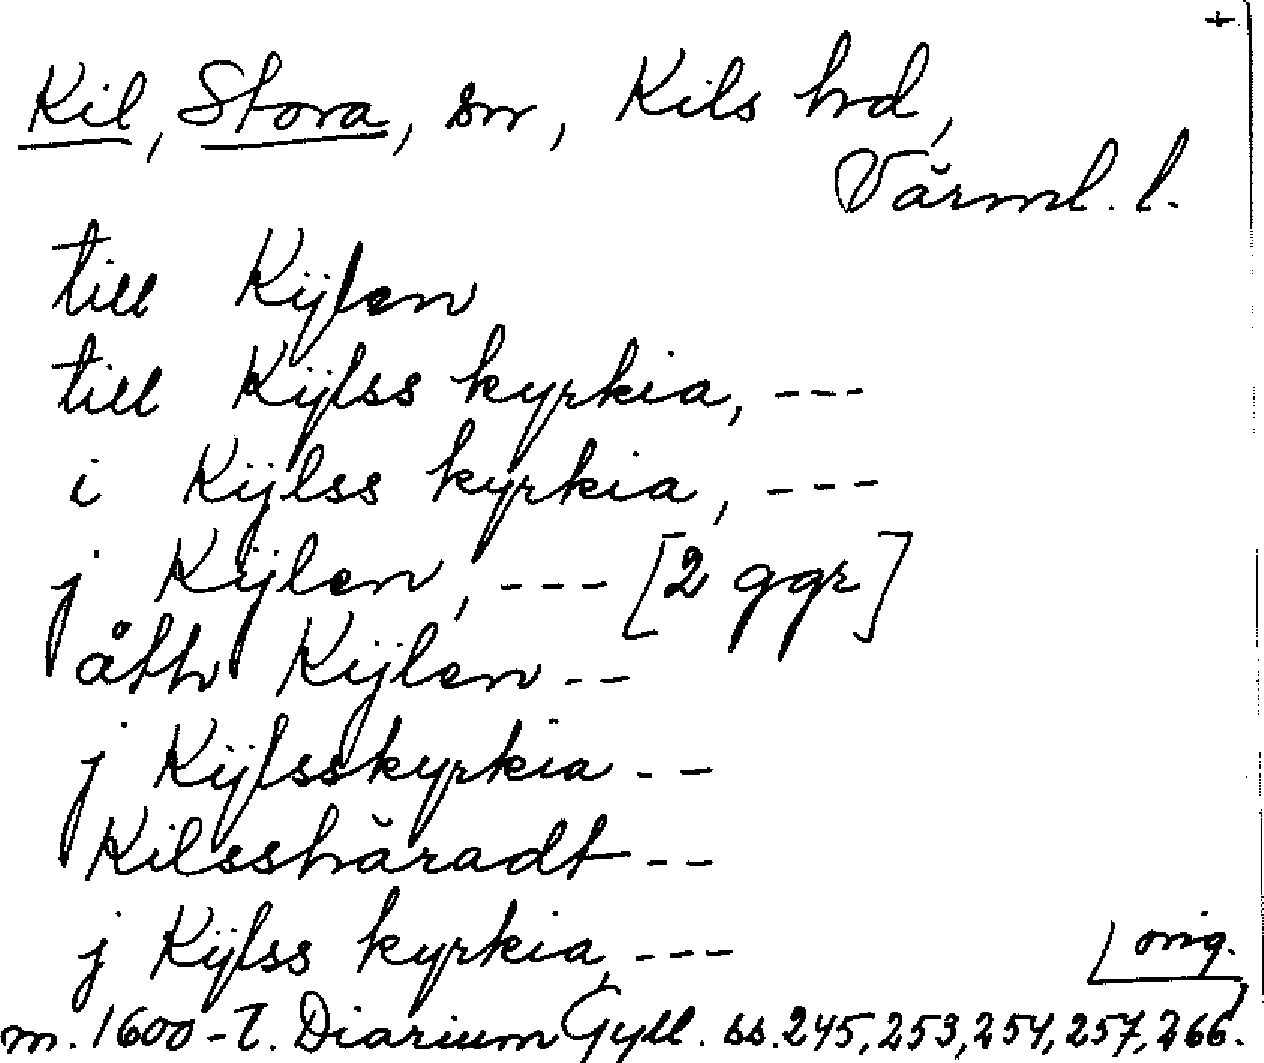 +
Kil, Stora, sn, Kils hrd,
Värml. l.
till Kijlen
till Kijlss kyrkia, ---
i Kijlss kyrkia, ---
j Kijlen, --- [2 ggr]
åth Kijlen --
j Kijlsskyrkia --
Kilsshäradt --
j Kijlss kyrkia, ---
orig.
m. 1600-t. Diarium Gyll. ss. 245, 253, 254, 257, 266.